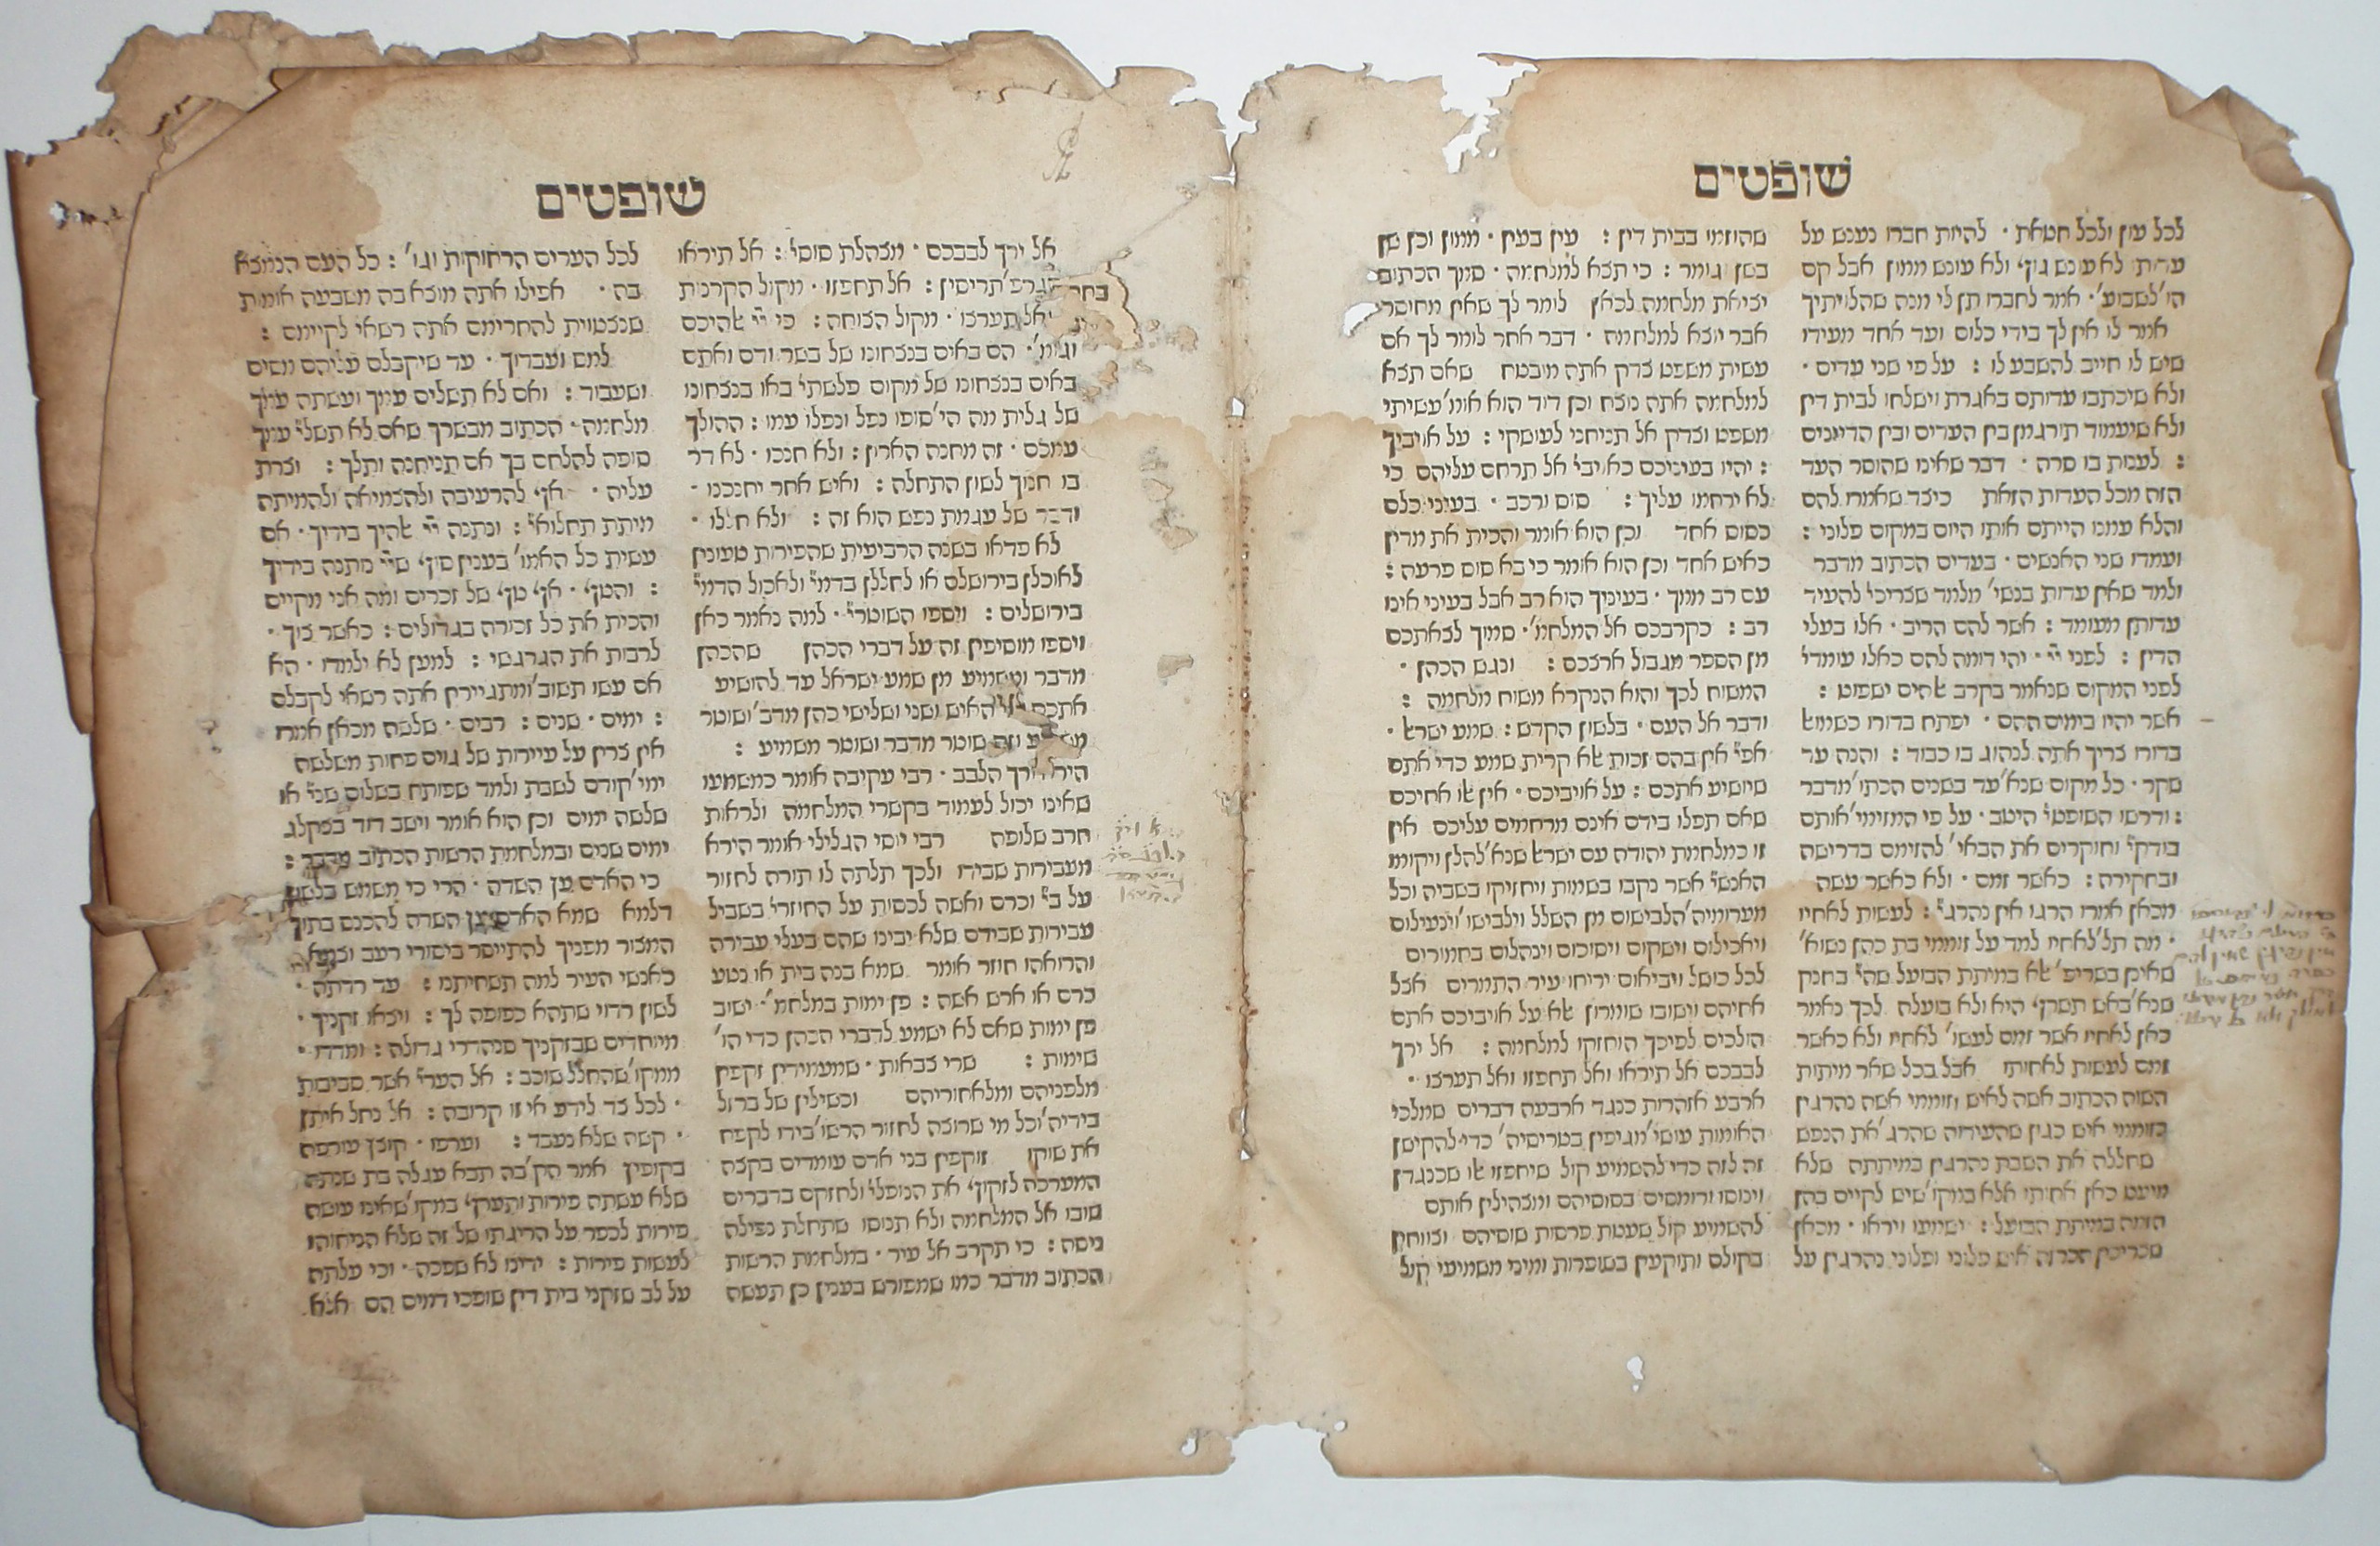 שופטים
לכל עון ולכל חטאת · להיות חברו נענש על
עדות לא עונש גוף ולא עונש ממון אבל קם
הו׳לשבוע׳ · אמר לחברו תן לי מנה שהלויתיך
אמר לו אין לך בידי כלום ועד אחד מעידו
שיש לו חייב להשבע לו : על פי שני עדים ·
ולא שיכתבו עדותם באגרת וישלחו לבית דין
ולא שיעמוד תורגמן בין העדים ובין הדיינים
: לענות בו סרה · דבר שאינו שהוסר העד
הזה מכל העדות הזאת כיצד שאמרו להם
והלא עמנו הייתם אותו היום במקום פלוני :
ועמדו שני האנשים · בעדים הכתוב מדבר
ולמד שאין עדות בנשי׳ מלמד שצריכי׳ להעיד
עדותן מעומד : אשר להם הריב · אלו בעלי
הדין : לפני יי׳ · יהי דומה להם כאלו עומדי׳
לפני המקום שנאמר בקרב אלהים ישפוט :
אשר יהיו בימים ההם · יפתח בדורו כשמואל
בדורו צריך אתה לנהוג בו כבוד : והנה עד
שקר · כל מקום שנא׳עד בשנים הכתו׳מדבר
: ודרשו השופטי׳ היטב · על פי המזימי׳אותם
בודקי׳ וחוקרים את הבאי׳ להזימם בדרישה
ובחקירה : כאשר זמם · ולא כאשר עשה
מכאן אמרו הרגו אין נהרגי׳ : לעשות לאחיו
· מה תל׳לאחיו למד על זוממי בת כהן נשוא׳
שאינן בשריפ׳ אלא במיתת הבועל שהי׳ בחנק
שנא׳באש תשרף היא ולא בועלה לכך נאמר
כאן לאחיו אשר זמם לעשו׳ לאחיו ולא כאשר
זמם לעשות לאחותו אבל בכל שאר מיתות
השוה הכתוב אשה לאיש וזוממי אשה נהרגין
כזוממי איש כגון שהעידוה שהרג׳את הנפש
שחללה את השבת נהרגין כמיתתה שלא
מיעט כאן אחותו אלא במקו׳שיש לקיים בהן
הזמה במיתת הבועל : ישמעו ויראו · מכאן
שצריכין הכרזה איש פלוני ופלוני נהרגין על
שהוזמו בבית דין : עין בעין · ממון וכן שן
בשן וגומר : כי תצא למלחמה · סמך הכתוב
יציאת מלחמה לכאן לומר לך שאין מחוסר
אבר יוצא למלחמה · דבר אחר לומר לך אם
עשית משפט צדק אתה מובטח שאם תצא
למלחמה אתה נוצח וכן דוד הוא אומ׳עשיתי
משפט וצדק אל תניחני לעושקי : על אויביך
: יהיו בעיניכם כאויבי׳ אל תרחם עליהם כי
לא ירחמו עליך : סוס ורכב · בעיני כלם
כסוס אחד וכן הוא אומר והכית את מדין
כאיש אחד וכן הוא אומר כי בא סוס פרעה :
עם רב ממך · בעיניך הוא רב אבל בעיני אינו
רב : כקרבכם אל המלחמ׳ · סמוך לצאתכם
מן הספר מגבול ארצכם : ונגש הכהן ·
המשוח לכך והוא הנקרא משוח מלחמה :
ודבר אל העם · בלשון הקדש : שמע ישראל ·
אפי׳ אין בהם זכות אלא קרית שמע כדי אתם
שיושיע אתכם : על אויביכם · אין אלו אחיכם
שאם תפלו בידם אינם מרחמים עליכם אין
זו כמלחמת יהודה עם ישראל שנא׳להלן ויקומו
האנשי׳ אשר נקבו בשמות ויחזיקו בשביה וכל
מערומיה׳הלבישום מן השלל וילבישו׳וינעילום
ויאכילום וישקום ויסוכום וינהלום בחמורים
לכל כושל ויביאום יריחו עיר התמרים אצל
אחיהם וישובו שומרון אלא על אויביכם אתם
הולכים לפיכך הוחזקו למלחמה : אל ירך
לבבכם אל תיראו ואל תחפזו ואל תערצו ·
ארבע אזהרות כנגד ארבעה דברים שמלכי
האומות עושי׳מגיפין בטריסיה׳ כדי להקישן
זה לזה כדי להשמיע קול שיחפזו אלו שכנגדן
וינוסו ורומסים בסוסיהם ומצהילין אותם
להשמיע קול שעטת פרסות סוסיהם וצווחין
בקולם ותוקעין בשופרות ומיני משמיעי קול
שופטים
אל ירך לבבכם · מצהלת סוסי׳ : אל תיראו
מהגפת תריסין : אל תחפזו · מקול הקרנות
ואל תערצו · מקול הצוחה : כי יי׳ אלהיכם
וגומ׳ · הם באים בנצחונו של בשר ודם ואתם
באים בנצחונו של מקום פלשתי׳ באו בנצחונו
של גלית מה הי׳סופו נפל ונפלו עמו : ההולך
עמכם · זה מחנה הארון : ולא חנכו · לא דר
בו חנוך לשון התחלה : ואיש אחר יחנכנו ·
ודבר של עגמת נפש הוא זה : ולא חללו ·
לא פדאו בשנה הרביעית שהפירות טעונין
לאוכלן בירושלם או לחללן בדמי׳ ולאכול הדמי׳
בירושלים : ויספו השוטרי׳ · למה נאמר כאן
ויספו מוסיפין זה על דברי הכהן שהכהן
מדבר ומשמיע מן שמע ישראל עד להושיע
אתכם האיש ושני ושלישי כהן מדב׳ושוטר
וזה שוטר מדבר ושוטר משמיע :
הירא ורך הלבב · רבי עקיבה אומר כמשמעו
שאינו יכול לעמוד בקשרי המלחמה ולראות
חרב שלופה רבי יוסי הגלילי אומר הירא
מעבירות שבידו ולכך תלתה לו תורה לחזור
על בי׳ וכרם ואשה לכסות על החוזרי׳ בשביל
עבירות שבידם שלא יבינו שהם בעלי עבירה
והרואהו חוזר אומר שמא בנה בית או נטע
כרם או ארש אשה : פן ימות במלחמ׳ · ישוב
פן ימות שאם לא ישמע לדברי הכהן כדי הו׳
שימות : שרי צבאות · שמעמידין זקפין
מלפניהם ומלאחוריהם וכשילין של ברזל
בידיה׳וכל מי שרוצה לחזור הרשו׳בידו לקפח
את שוקו זוקפין בני אדם עומדים בקצה
המערכה לזקוף את הנופלי׳ ולחזקם בדברים
שובו אל המלחמה ולא תנוסו שתחלת נפילה
ניסה : כי תקרב אל עיר · במלחמת הרשות
הכתוב מדבר כמו שמפורש בענין כן תעשה
לכל הערים הרחוקות וגו׳ : כל העם הנמצא
בה · אפילו אתה מוצא בה משבעה אומות
שנצטוית להחרימם אתה רשאי לקיימם :
למס ועבדוך · עד שיקבלם עליהם מסים
ושעבוד : ואם לא תשלים עמך ועשתה עמך
מלחמה · הכתוב מבשרך שאם לא תשלי׳ עמך
סופה להלחם בך אם תניחנה ותלך : וצרת
עליה · אף להרעיבה ולהצמיאה ולהמיתה
מיתת תחלואי׳ : ונתנה יי׳ אלהיך בידיך · אם
עשית כל האמו׳ בענין סוף שיי׳ מתנה בידיך
: והטף · אף טף של זכרים ומה אני מקיים
והכית את כל זכורה בגדולים : כאשר צוך ·
לרבות את הגרגשי : למען לא ילמדו · הא
אם עשו תשוב׳ומתגיירין אתה רשאי לקבלם
: ימים · שנים : רבים · שלשה מכאן אמרו
אין צרין על עיירות של גוים פחות משלשה
ימי׳קודם לשבת ולמד שפותח בשלום שני׳ או
שלשה ימים וכן הוא אומר וישב דוד בצקלג
ימים שנים ובמלחמת הרשות הכתוב מדבר :
כי האדם עץ השדה · הרי כי משמש בלשון
דלמא שמא האדם עץ השדה להכנס בתוך
המצור מפניך להתייסר ביסורי רעב וצמא
כאנשי העיר למה תשחיתנו : עד רדתה ·
לשון רדוי שתהא כפופה לך : ויצאו זקניך ·
מיוחדים שבזקניך סנהדרי גדולה : ומדדו ·
ממקו׳שהחלל שוכב : אל הערי׳ אשר סביבות
· לכל צד לידע אי זו קרובה : אל נחל איתן
· קשה שלא נעבד : וערפו · קוצץ עורפה
בקופיץ אמר הק׳בה תבא עגלה בת שנתה
שלא עשתה פירות ותערף במקו׳שאינו עושה
פירות לכפר על הריגתו של זה שלא הניחוהו
לעשות פירות : ידינו לא שפכה · וכי עלתה
על לב שזקני בית דין שופכי דמים הם אלא